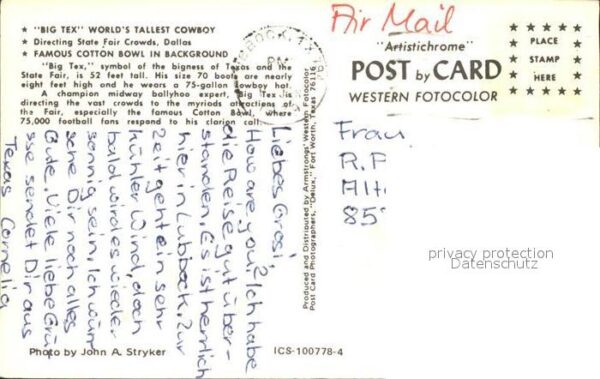 ★ "BIG TEX" WORLD'S TALLEST COWBOY
★ Directing State Fair Crowds, Dallas
★ FAMOUS COTTON BOWL IN BACKGROUND
"Big Tex," symbol of the bigness of Texas and the
State Fair, is 52 feet tall. His size 70 boots are nearly
eight feet high and he wears a 75-gallon Cowboy hat.
A champion midway ballyhoo expert, Big Tex is
directing the vast crowds to the myriads attractions of
the Fair, especially the famous Cotton Bowl, where
75,000 football fans respond to his clarion call.
Liebes Grosi,
How are you? Ich habe
die Reise gut über-
standen. Es ist herrlich
hier in Lubbock. Zur
Zeit geht ein sehr
kühler Wind, doch
bald wird es wieder
sonnig sein. Ich wün
sche Dir noch alles
Gute. Viele liebe Grü
sse sendet Dir aus
Texas Cornelia
Photo by John A. Stryker
Produced and Distributed by Armstrongs' Western Fotocolor
Post Card Photographers, "Delux," Fort Worth, Texas 76116
ICS-100778-4
Air Mail
"Artistichrome"
POST by CARD
WESTERN FOTOCOLOR
PLACE
STAMP
HERE
PM
Frau
R. P
Alt
85
privacy protection
Datenschutz